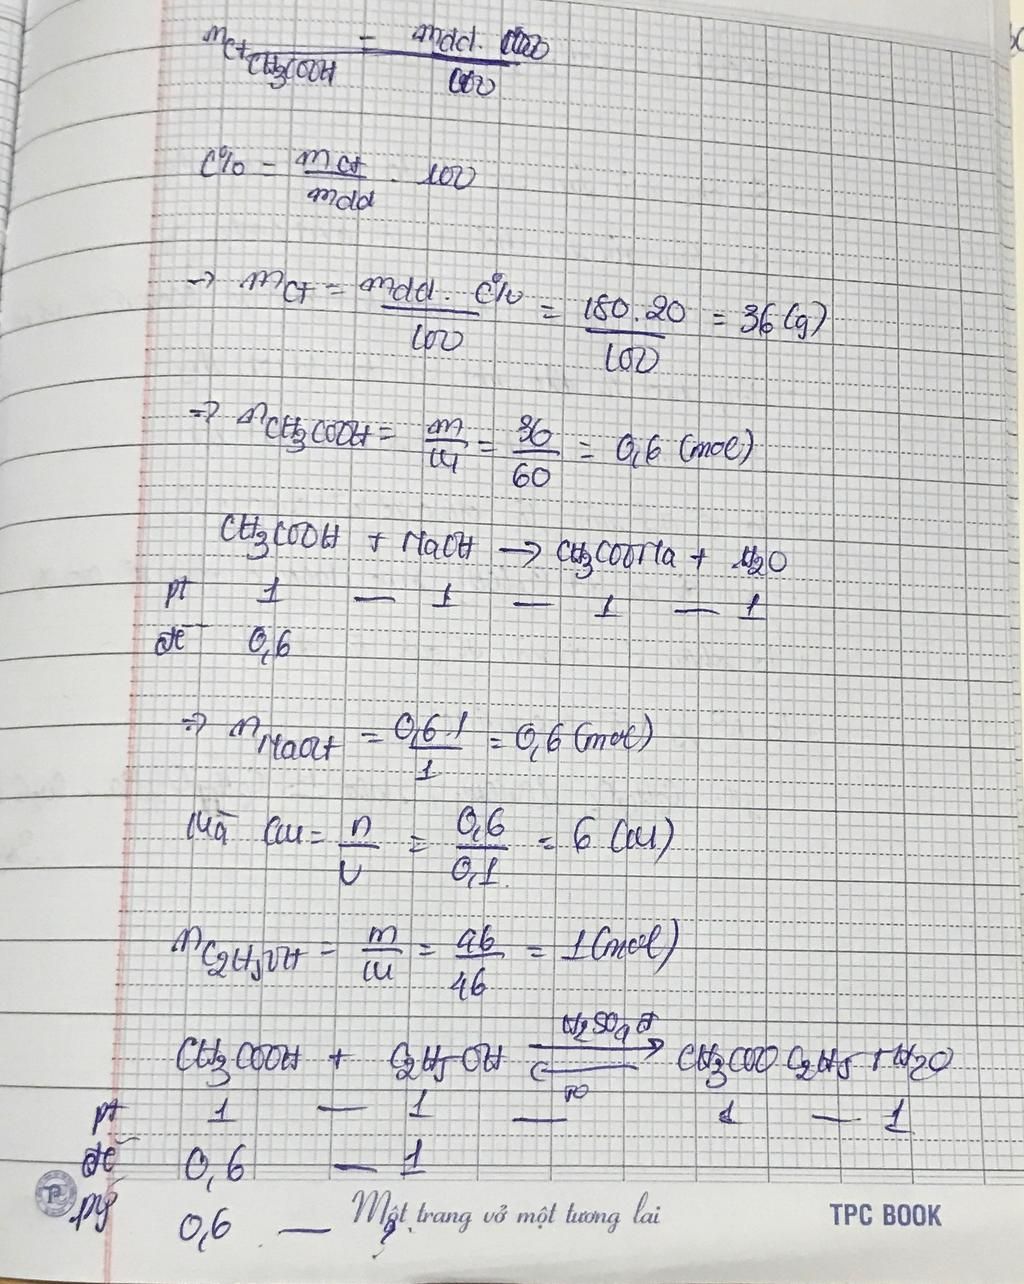 mct CH3COOH = mdd.
100
C% = mct / mdd . 100
→ mct = mdd . C% / 100 = 180.20 / 100 = 36 (g)
=> nCH3COOH = m / M = 36 / 60 = 0,6 (mol)
CH3COOH + NaOH → CH3COONa + H2O
pt 1 — 1 — 1 — 1
đề 0,6
=> nNaOH = 0,6.1 / 1 = 0,6 (mol)
Mà CM = n / V = 0,6 / 0,1 = 6 (M)
nC2H5OH = m / M = 46 / 46 = 1 (mol)
H2SO4 đ
CH3COOH + C2H5OH ⇌ CH3COOC2H5 + H2O
to
pt 1 — 1 — 1 — 1
đề 0,6 — 1
pứ 0,6 —
Một trang vở một tương lai TPC BOOK